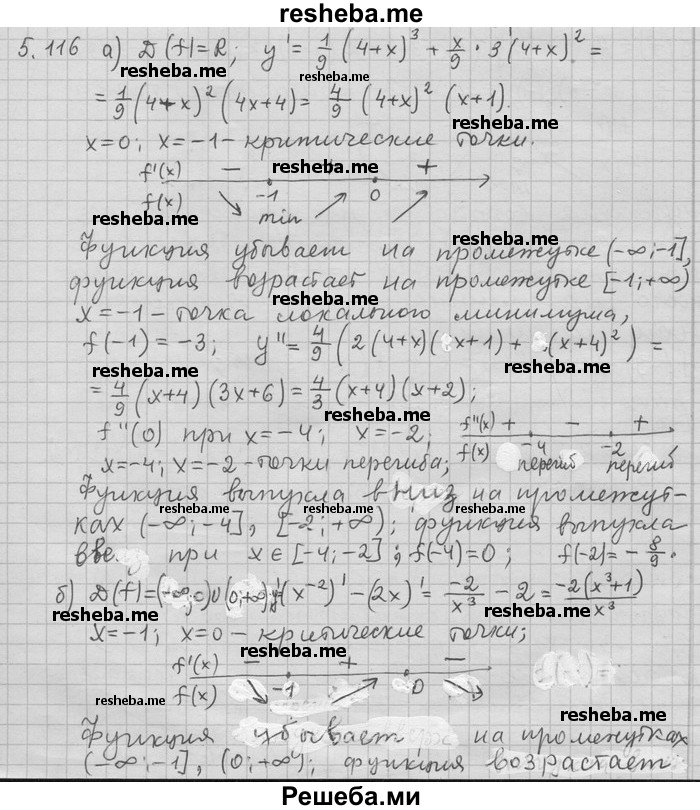 resheba.me
5.116 а) D(f)=R; y' = 1/9 (4+x)^3 + x/9 · 3(4+x)^2 =
resheba.me resheba.me
= 1/9 (4+x)^2 (4x+4) = 4/9 (4+x)^2 (x+1).
resheba.me
x=0; x=-1 - критические точки.
f'(x) − resheba.me +
f(x) -1 0
resheba.me min
Функция убывает на промежутке (-∞;-1],
resheba.me resheba.me
функция возрастает на промежутке [-1;+∞)
x=-1 - точка локального минимума,
resheba.me
f(-1) = -3; y'' = 4/9 (2(4+x)(x+1) + (x+4)^2) =
resheba.me resheba.me
= 4/9 (x+4)(3x+6) = 4/3 (x+4)(x+2);
resheba.me
f''(0) при x=-4; x=-2; f''(x) + − +
resheba.me f(x) -4 -2
x=-4; x=-2 - точки перегиба; перегиб перегиб
resheba.me
Функция выпукла вниз на промежут-
resheba.me resheba.me resheba.me
ках (-∞;-4], [-2;+∞); функция выпукла
при x∈[-4;-2]; f(-4)=0; f(-2)= -8/9.
resheba.me resheba.me
б) D(f)=(-∞;0)∪(0;+∞); y'=(x^-2)' - (2x)' = -2/x^3 - 2 = -2(x^3+1)/x^3
resheba.me resheba.me
x=-1; x=0 - критические точки;
resheba.me
f'(x) − + −
f(x) -1 0
resheba.me resheba.me
resheba.me
Функция убывает на промежутках
resheba.me
(-∞;-1], (0;+∞); функция возрастает
resheba.me
Решеба.ми